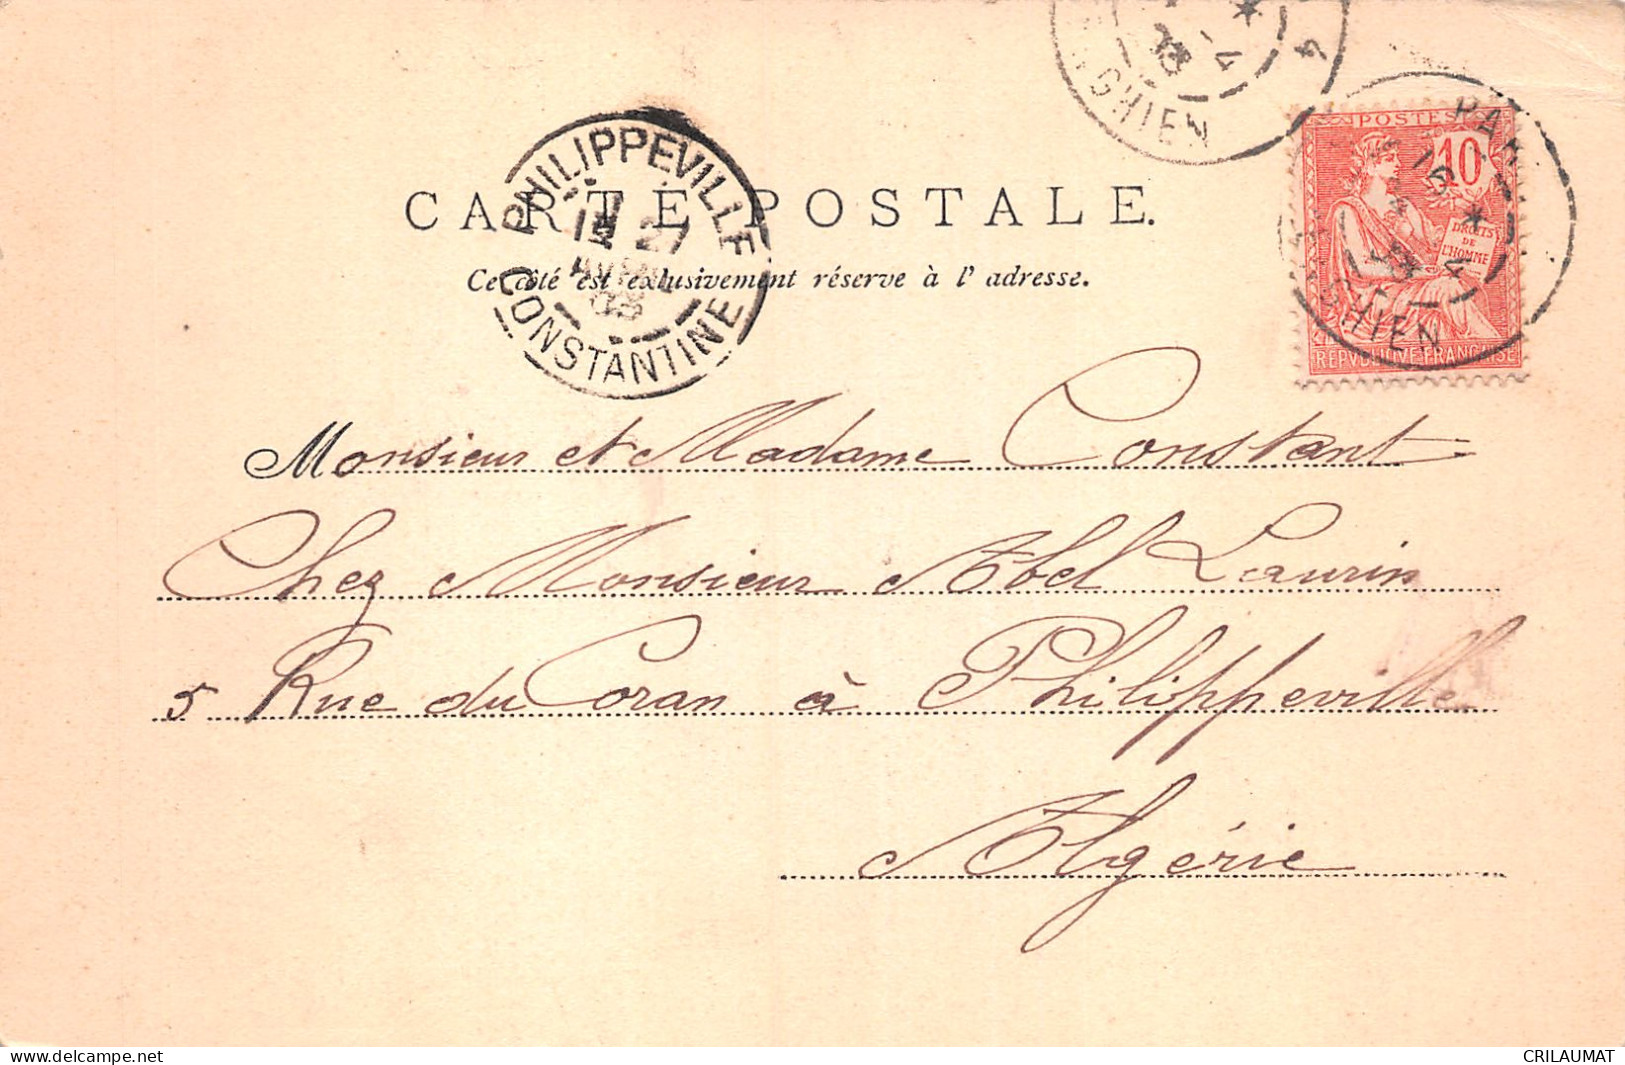 GHIEN
4
PHILIPPEVILLE
CONSTANTINE
27
03
POSTES
10
DROITS
DE
L'HOMME
REPVBLIQVE FRANÇAISE
GHIEN
CARTE POSTALE.
Ce côté est exclusivement réservé à l'adresse.
Monsieur et Madame Constant
Chez Monsieur Abel Laurin
5 Rue du Coran à Philippeville
Algérie
www.delcampe.net
CRILAUMAT